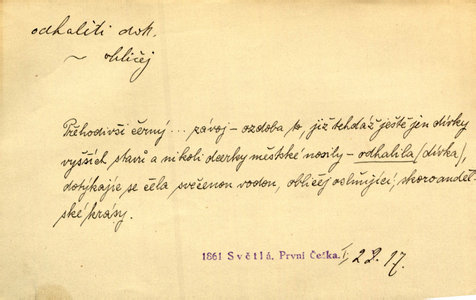 odhaliti dok.
~ obličej
Přehodivši černý ... závoj – ozdoba to, již tehdáž ještě jen dívky
vyšších stavů a nikoli dcerky městské nosily – odhalila /dívka/,
dotýkajíc se čela svěcenou vodou, obličej oslňující, skoro anděl-
ské krásy.
1861 Světlá. První Češka. I, 22. 17.